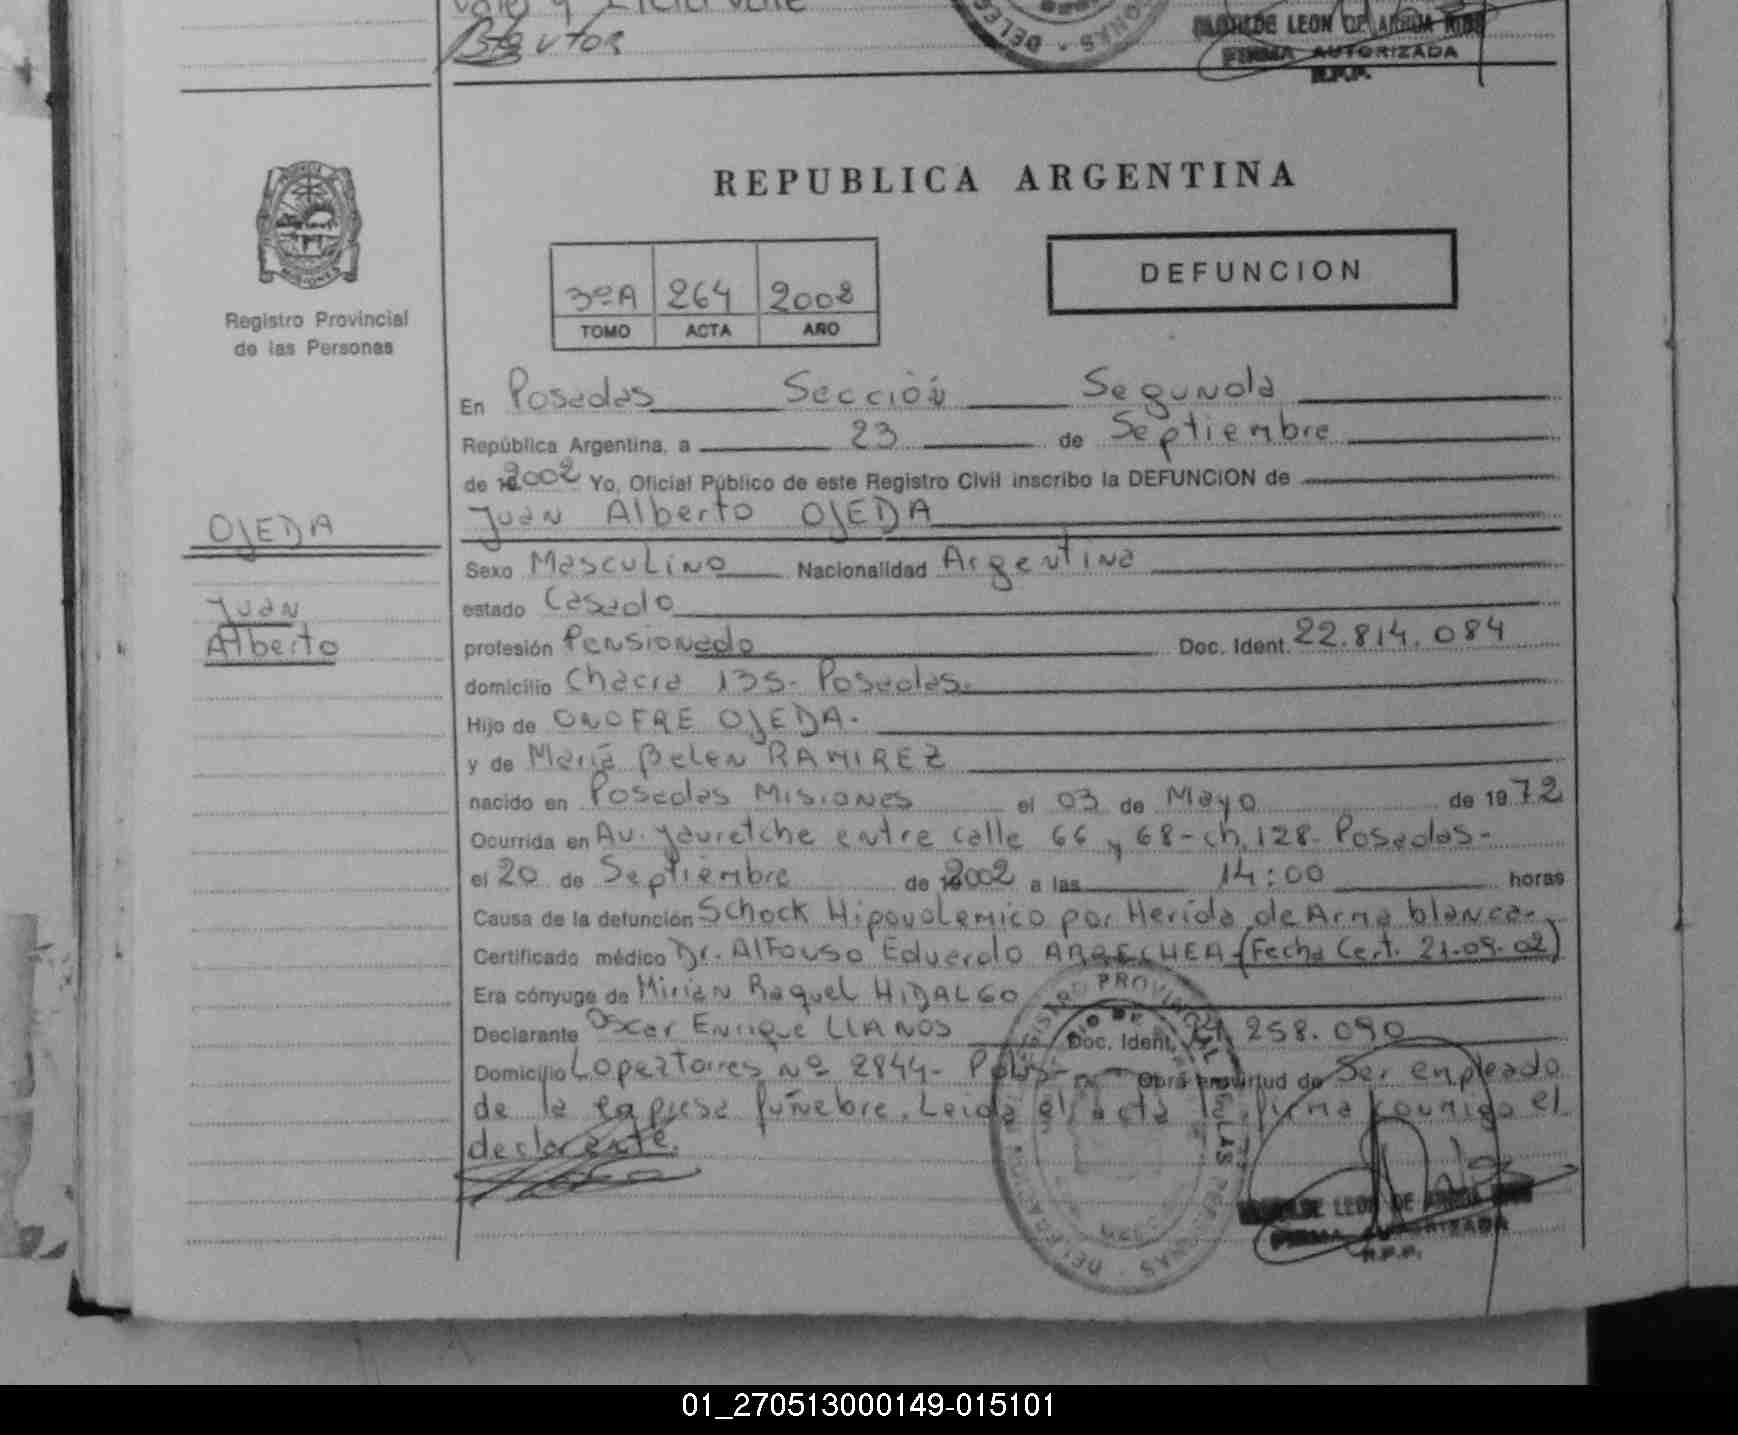 REPUBLICA ARGENTINA
3ºA 264 2002
TOMO ACTA AÑO
DEFUNCION
Registro Provincial
de las Personas
OJEDA
Juan
Alberto
En Posadas Sección Segunda
República Argentina, a 23 de Septiembre
de 2002 Yo, Oficial Público de este Registro Civil inscribo la DEFUNCION de
Juan Alberto OJEDA
Sexo Masculino Nacionalidad Argentina
estado Casado
profesión Pensionado Doc. Ident. 22.814.084
domicilio Chacra 135- Posadas.
Hijo de ONOFRE OJEDA.
y de María Belen RAMIREZ
nacido en Posadas Misiones el 03 de Mayo de 1972
Ocurrida en Av. Jauretche entre calle 66 y 68-ch. 128- Posadas-
el 20 de Septiembre de 2002 a las 14:00 horas
Causa de la defunción Schock Hipovolemico por Herida de Arma blanca-.
Certificado médico Dr. Alfonso Eduardo ARRECHEA (Fecha Cert. 21-09-02)
Era cónyuge de Mirian Raquel HIDALGO
Declarante Oscar Enrique LLANOS Doc. Ident. 258.090
Domicilio Lopez Torres Nº 2844- Pdas- Obra en virtud de Ser empleado
de la empresa fúnebre. Leida el acta la firma conmigo el
declarante.
LEON DE
FIRMA AUTORIZADA
R.P.P.
01_270513000149-015101